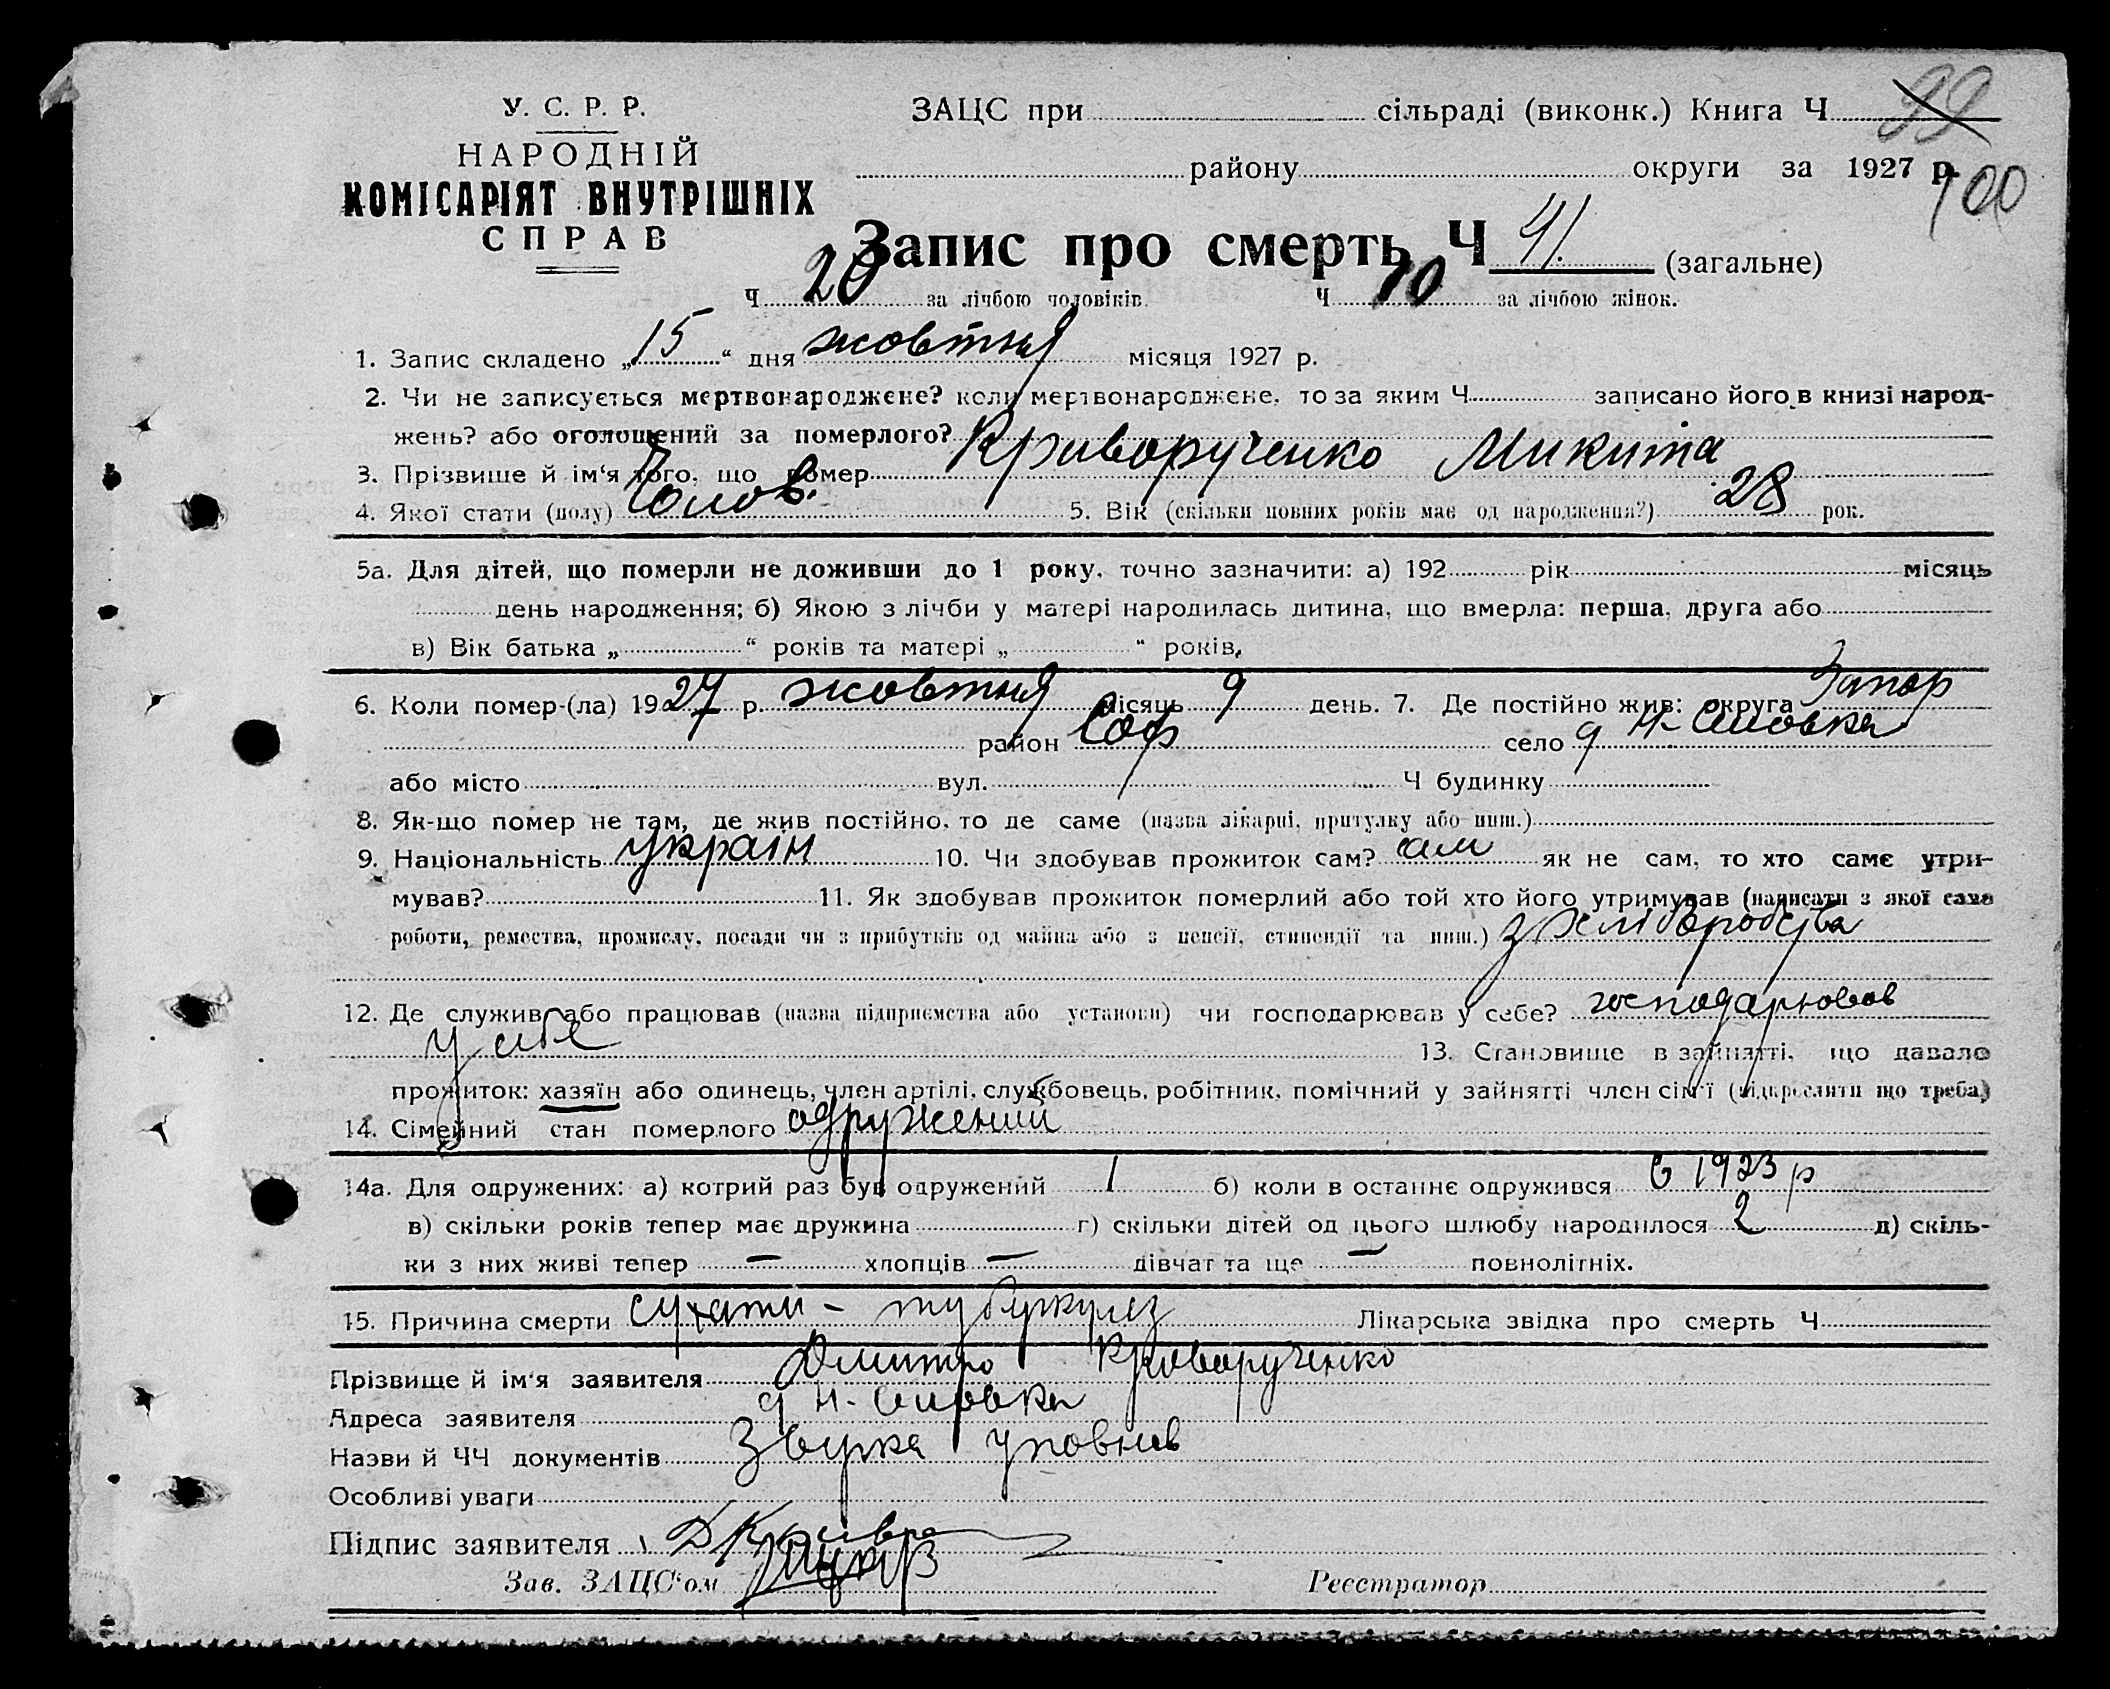 У. С. Р. Р.
НАРОДНІЙ
КОМІСАРІЯТ ВНУТРІШНІХ
СПРАВ
ЗАЦС при сільраді (виконк.) Книга Ч 99
району округи за 1927 р.
100
Запис про смерть Ч 41. (загальне)
Ч 20 за лічбою чоловіків. Ч 10 за лічбою жінок.
1. Запис складено „15“ дня жовтня місяця 1927 р.
2. Чи не записується мертвонароджене? коли мертвонароджене, то за яким Ч записано його в книзі народ-
жень? або оголошений за померлого?
3. Прізвище й ім‘я того, що помер Криворученко Микита
4. Якої стати (полу) Чолов. 5. Вік (скільки повних років має од народження?) 28 рок.
5а. Для дітей, що померли не доживши до 1 року, точно зазначити: а) 192 рік місяць
день народження; б) Якою з лічби у матері народилась дитина, що вмерла: перша, друга або
в) Вік батька „ “ років та матері „ “ років.
6. Коли помер-(ла) 1927 р. жовтня місяць 9 день. 7. Де постійно жив: округа Запор
район Соф село д Н-
або місто вул. Ч будинку
8. Як-що помер не там, де жив постійно, то де саме (назва лікарні, притулку або инш.)
9. Національність україн 10. Чи здобував прожиток сам? сам як не сам, то хто саме утри-
мував? 11. Як здобував прожиток померлий або той хто його утримував (написати з якої саме
роботи, ремества, промислу, посади чи з прибутків од майна або з пенсії, стипендії та инш.) з хліборобства
12. Де служив або працював (назва підприємства або установи) чи господарював у себе? господарював
у себе 13. Становище в зайнятті, що давало
прожиток: хазяїн або одинець, член артілі, службовець, робітник, помічний у зайнятті член сім‘ї (підкреслити що треба)
14. Сімейний стан померлого одружений
14а. Для одружених: а) котрий раз був одружений 1 б) коли в останнє одружився в 1923 р
в) скільки років тепер має дружина г) скільки дітей од цього шлюбу народилося 2 д) скіль-
ки з них живі тепер — хлопців — дівчат та ще — повнолітніх.
15. Причина смерти сухоти - туберкулез Лікарська звідка про смерть Ч
Прізвище й ім‘я заявителя Дмитро Криворученко
Адреса заявителя д Н-
Назви й ЧЧ документів
Особливі уваги
Підпис заявителя
Зав. ЗАЦС‘ом Реєстратор